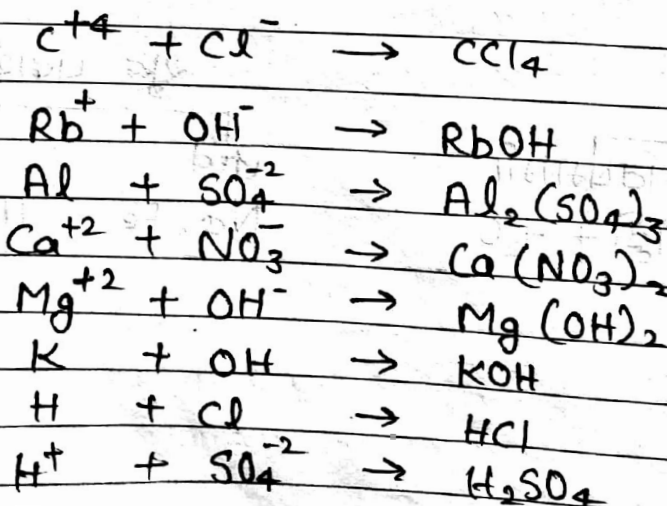 C⁺⁴ + Cl⁻ → CCl₄
Rb⁺ + OH⁻ → RbOH
Al + SO₄⁻² → Al₂(SO₄)₃
Ca⁺² + NO₃⁻ → Ca(NO₃)₂
Mg⁺² + OH⁻ → Mg(OH)₂
K + OH → KOH
H + Cl → HCl
H⁺ + SO₄⁻² → H₂SO₄